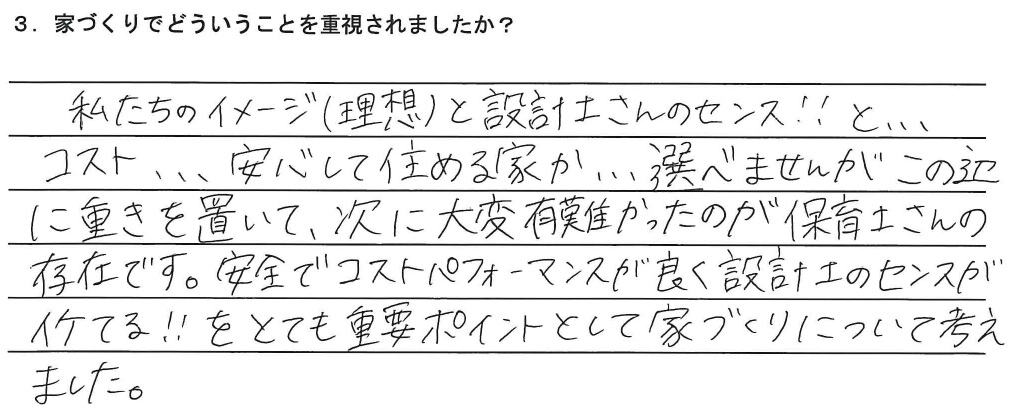 3. 家づくりでどういうことを重視されましたか？
私たちのイメージ(理想)と設計士さんのセンス!!と、、、
コスト、、、安心して住める家か、、、選べませんがこの辺
に重きを置いて、次に大変有難かったのが保育士さんの
存在です。安全でコストパフォーマンスが良く設計士のセンスが
イケてる!!をとても重要ポイントとして家づくりについて考え
ました。